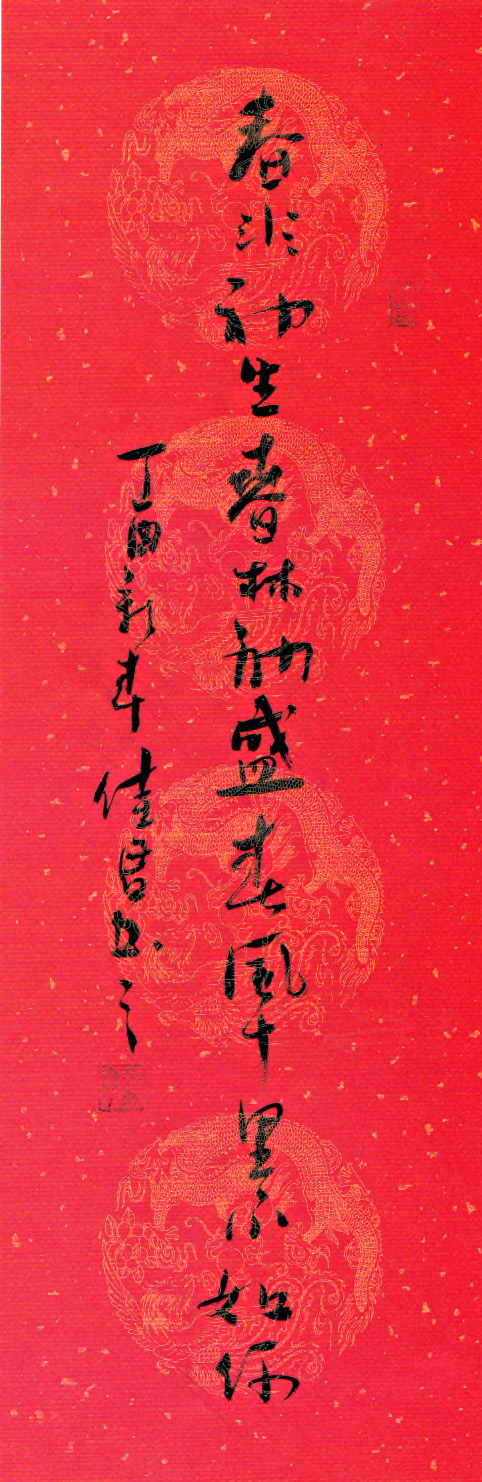 春水初生春林初盛春風十里不如你
丁酉新春佳君书之